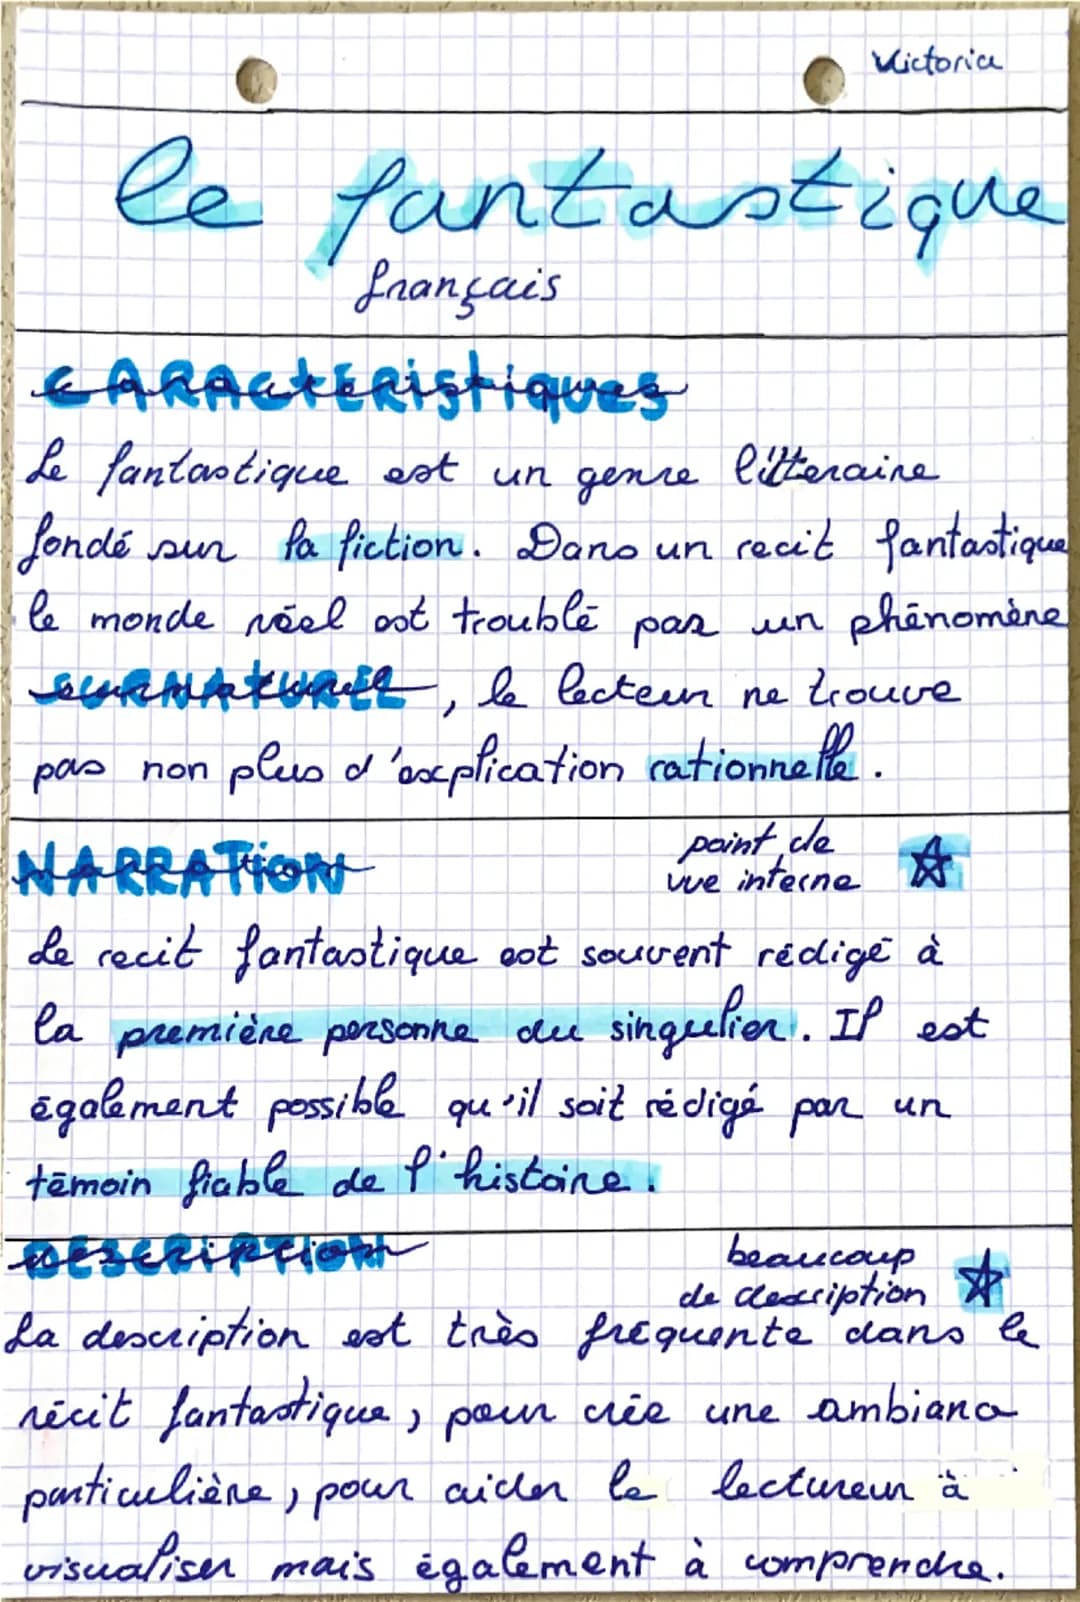 Victoria
le fantastique
français
CARACtERistiques
Le fantastique est un genre litteraire
fondé sur la fiction. Dans un recit fantastique
le monde réel est troublé par un phénomène
SURNATUREL, le lecteur ne trouve
pas non plus d'explication rationnelle.
NARRATION
point de
vue interne
Le recit fantastique est souvent rédigé à
la première personne du singulier. Il est
également possible qu'il soit rédigé par un
témoin fiable de l'histoire.
DESCRIPTION
beaucoup
de description
La description est très fréquente dans le
récit fantastique, pour crée une ambiana
particulière, pour aider le lectureur à
visualiser mais également à comprendre.